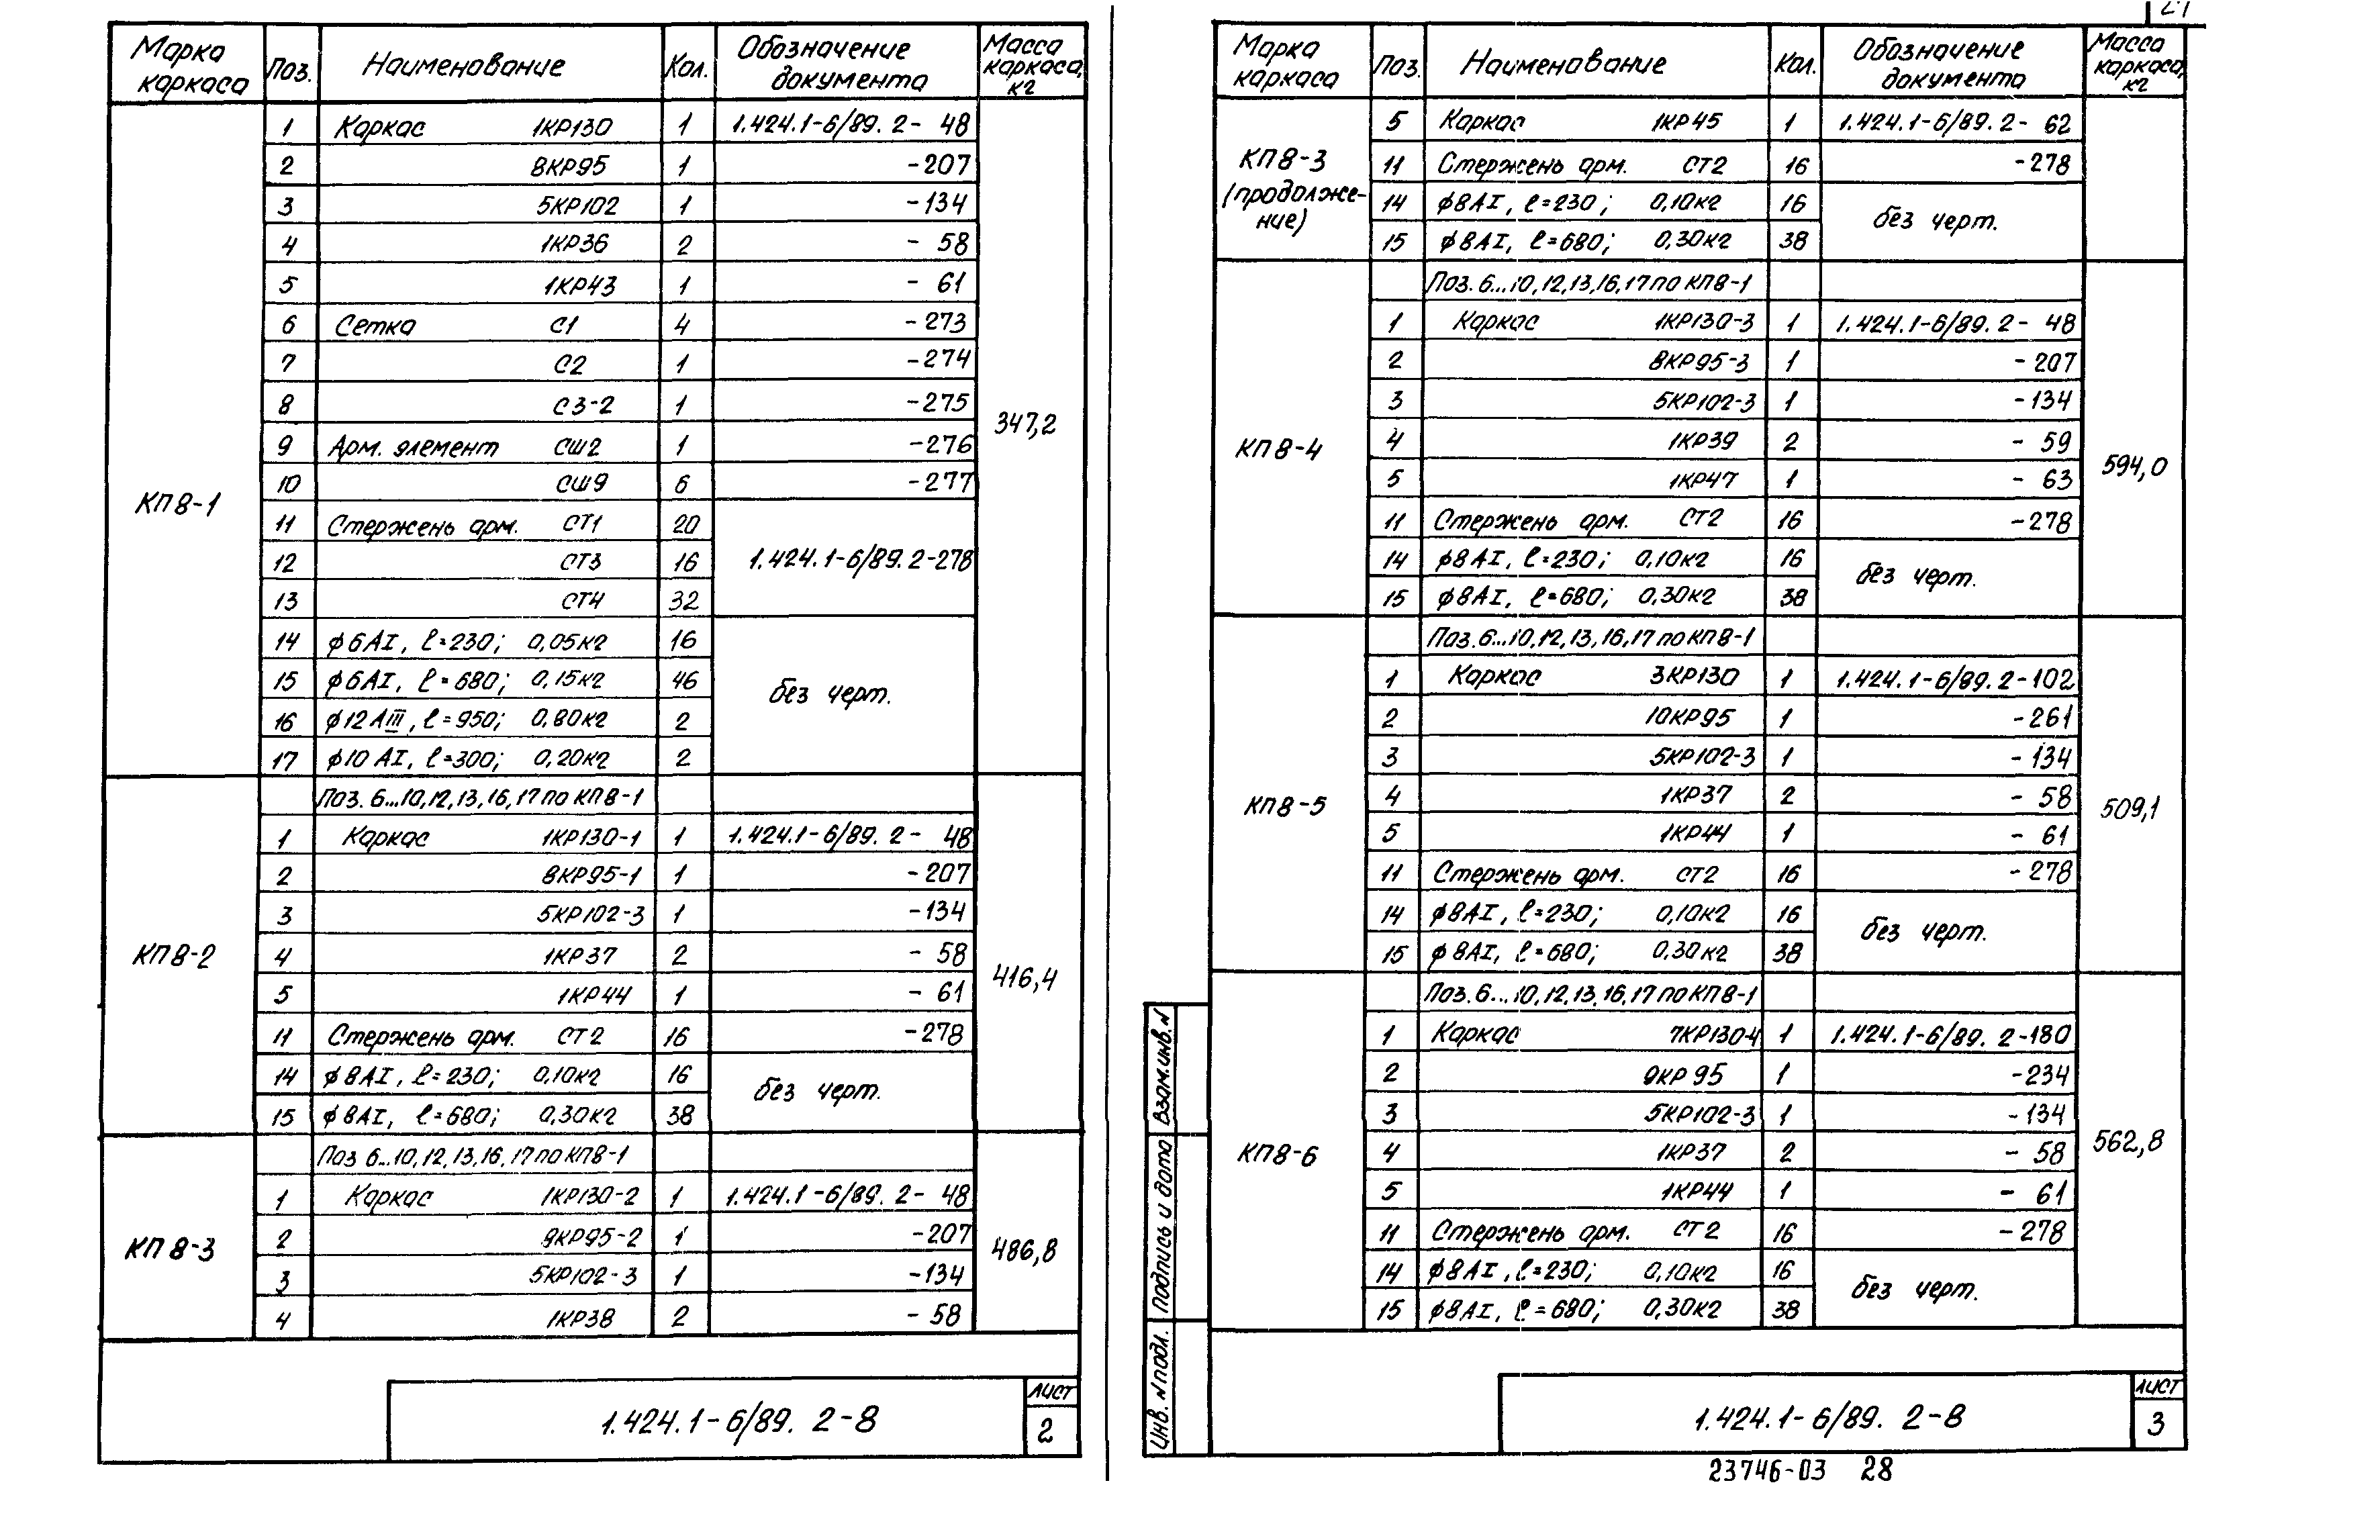 Марка каркаса | Поз. | Наименование | Кол. | Обозначение документа | Масса каркаса, кг
КП8-1 | 1 | Каркас 1КР130 | 1 | 1.424.1-6/89. 2- 48 | 347,2
2 | 8КР95 | 1 | -207
3 | 5КР102 | 1 | -134
4 | 1КР36 | 2 | - 58
5 | 1КР43 | 1 | - 61
6 | Сетка С1 | 4 | -273
7 | С2 | 1 | -274
8 | С3-2 | 1 | -275
9 | Арм. элемент СШ2 | 1 | -276
10 | СШ9 | 6 | -277
11 | Стержень арм. СТ1 | 20 | 1.424.1-6/89. 2-278
12 | СТ3 | 16
13 | СТ4 | 32
14 | ϕ6АI, ℓ=230; 0,05кг | 16 | без черт.
15 | ϕ6АI, ℓ=680; 0,15кг | 46
16 | ϕ12АIII, ℓ=950; 0,80кг | 2
17 | ϕ10АI, ℓ=300; 0,20кг | 2
КП8-2 | Поз. 6...10,12,13,16,17 по КП8-1 | 416,4
1 | Каркас 1КР130-1 | 1 | 1.424.1-6/89. 2- 48
2 | 8КР95-1 | 1 | -207
3 | 5КР102-3 | 1 | -134
4 | 1КР37 | 2 | - 58
5 | 1КР44 | 1 | - 61
11 | Стержень арм. СТ2 | 16 | -278
14 | ϕ8АI, ℓ=230; 0,10кг | 16 | без черт.
15 | ϕ8АI, ℓ=680; 0,30кг | 38
КП8-3 | Поз 6...10,12,13,16,17 по КП8-1 | 486,8
1 | Каркас 1КР130-2 | 1 | 1.424.1-6/89. 2- 48
2 | 9КР95-2 | 1 | -207
3 | 5КР102-3 | 1 | -134
4 | 1КР38 | 2 | - 58
1.424.1-6/89. 2-8
Лист
2
Марка каркаса | Поз. | Наименование | Кол. | Обозначение документа | Масса каркаса, кг
КП8-3 (продолже-ние) | 5 | Каркас 1КР45 | 1 | 1.424.1-6/89. 2- 62
11 | Стержень арм. СТ2 | 16 | -278
14 | ϕ8АI, ℓ=230; 0,10кг | 16 | без черт.
15 | ϕ8АI, ℓ=680; 0,30кг | 38
КП8-4 | Поз. 6...10,12,13,16,17 по КП8-1 | 594,0
1 | Каркас 1КР130-3 | 1 | 1.424.1-6/89. 2- 48
2 | 8КР95-3 | 1 | -207
3 | 5КР102-3 | 1 | -134
4 | 1КР39 | 2 | - 59
5 | 1КР47 | 1 | - 63
11 | Стержень арм. СТ2 | 16 | -278
14 | ϕ8АI, ℓ=230; 0,10кг | 16 | без черт.
15 | ϕ8АI, ℓ=680; 0,30кг | 38
КП8-5 | Поз. 6...10,12,13,16,17 по КП8-1 | 509,1
1 | Каркас 3КР130 | 1 | 1.424.1-6/89. 2-102
2 | 10КР95 | 1 | -261
3 | 5КР102-3 | 1 | -134
4 | 1КР37 | 2 | - 58
5 | 1КР44 | 1 | - 61
11 | Стержень арм. СТ2 | 16 | -278
14 | ϕ8АI, ℓ=230; 0,10кг | 16 | без черт.
15 | ϕ8АI, ℓ=680; 0,30кг | 38
КП8-6 | Поз. 6...10,12,13,16,17 по КП8-1 | 562,8
1 | Каркас 7КР130-4 | 1 | 1.424.1-6/89. 2-180
2 | 9КР95 | 1 | -234
3 | 5КР102-3 | 1 | -134
4 | 1КР37 | 2 | - 58
5 | 1КР44 | 1 | - 61
11 | Стержень арм. СТ2 | 16 | -278
14 | ϕ8АI, ℓ=230; 0,10кг | 16 | без черт.
15 | ϕ8АI, ℓ=680; 0,30кг | 38
Взам.инв.N
Подпись и дата
Инв.N подл.
1.424.1-6/89. 2-8
Лист
3
23746-03 28